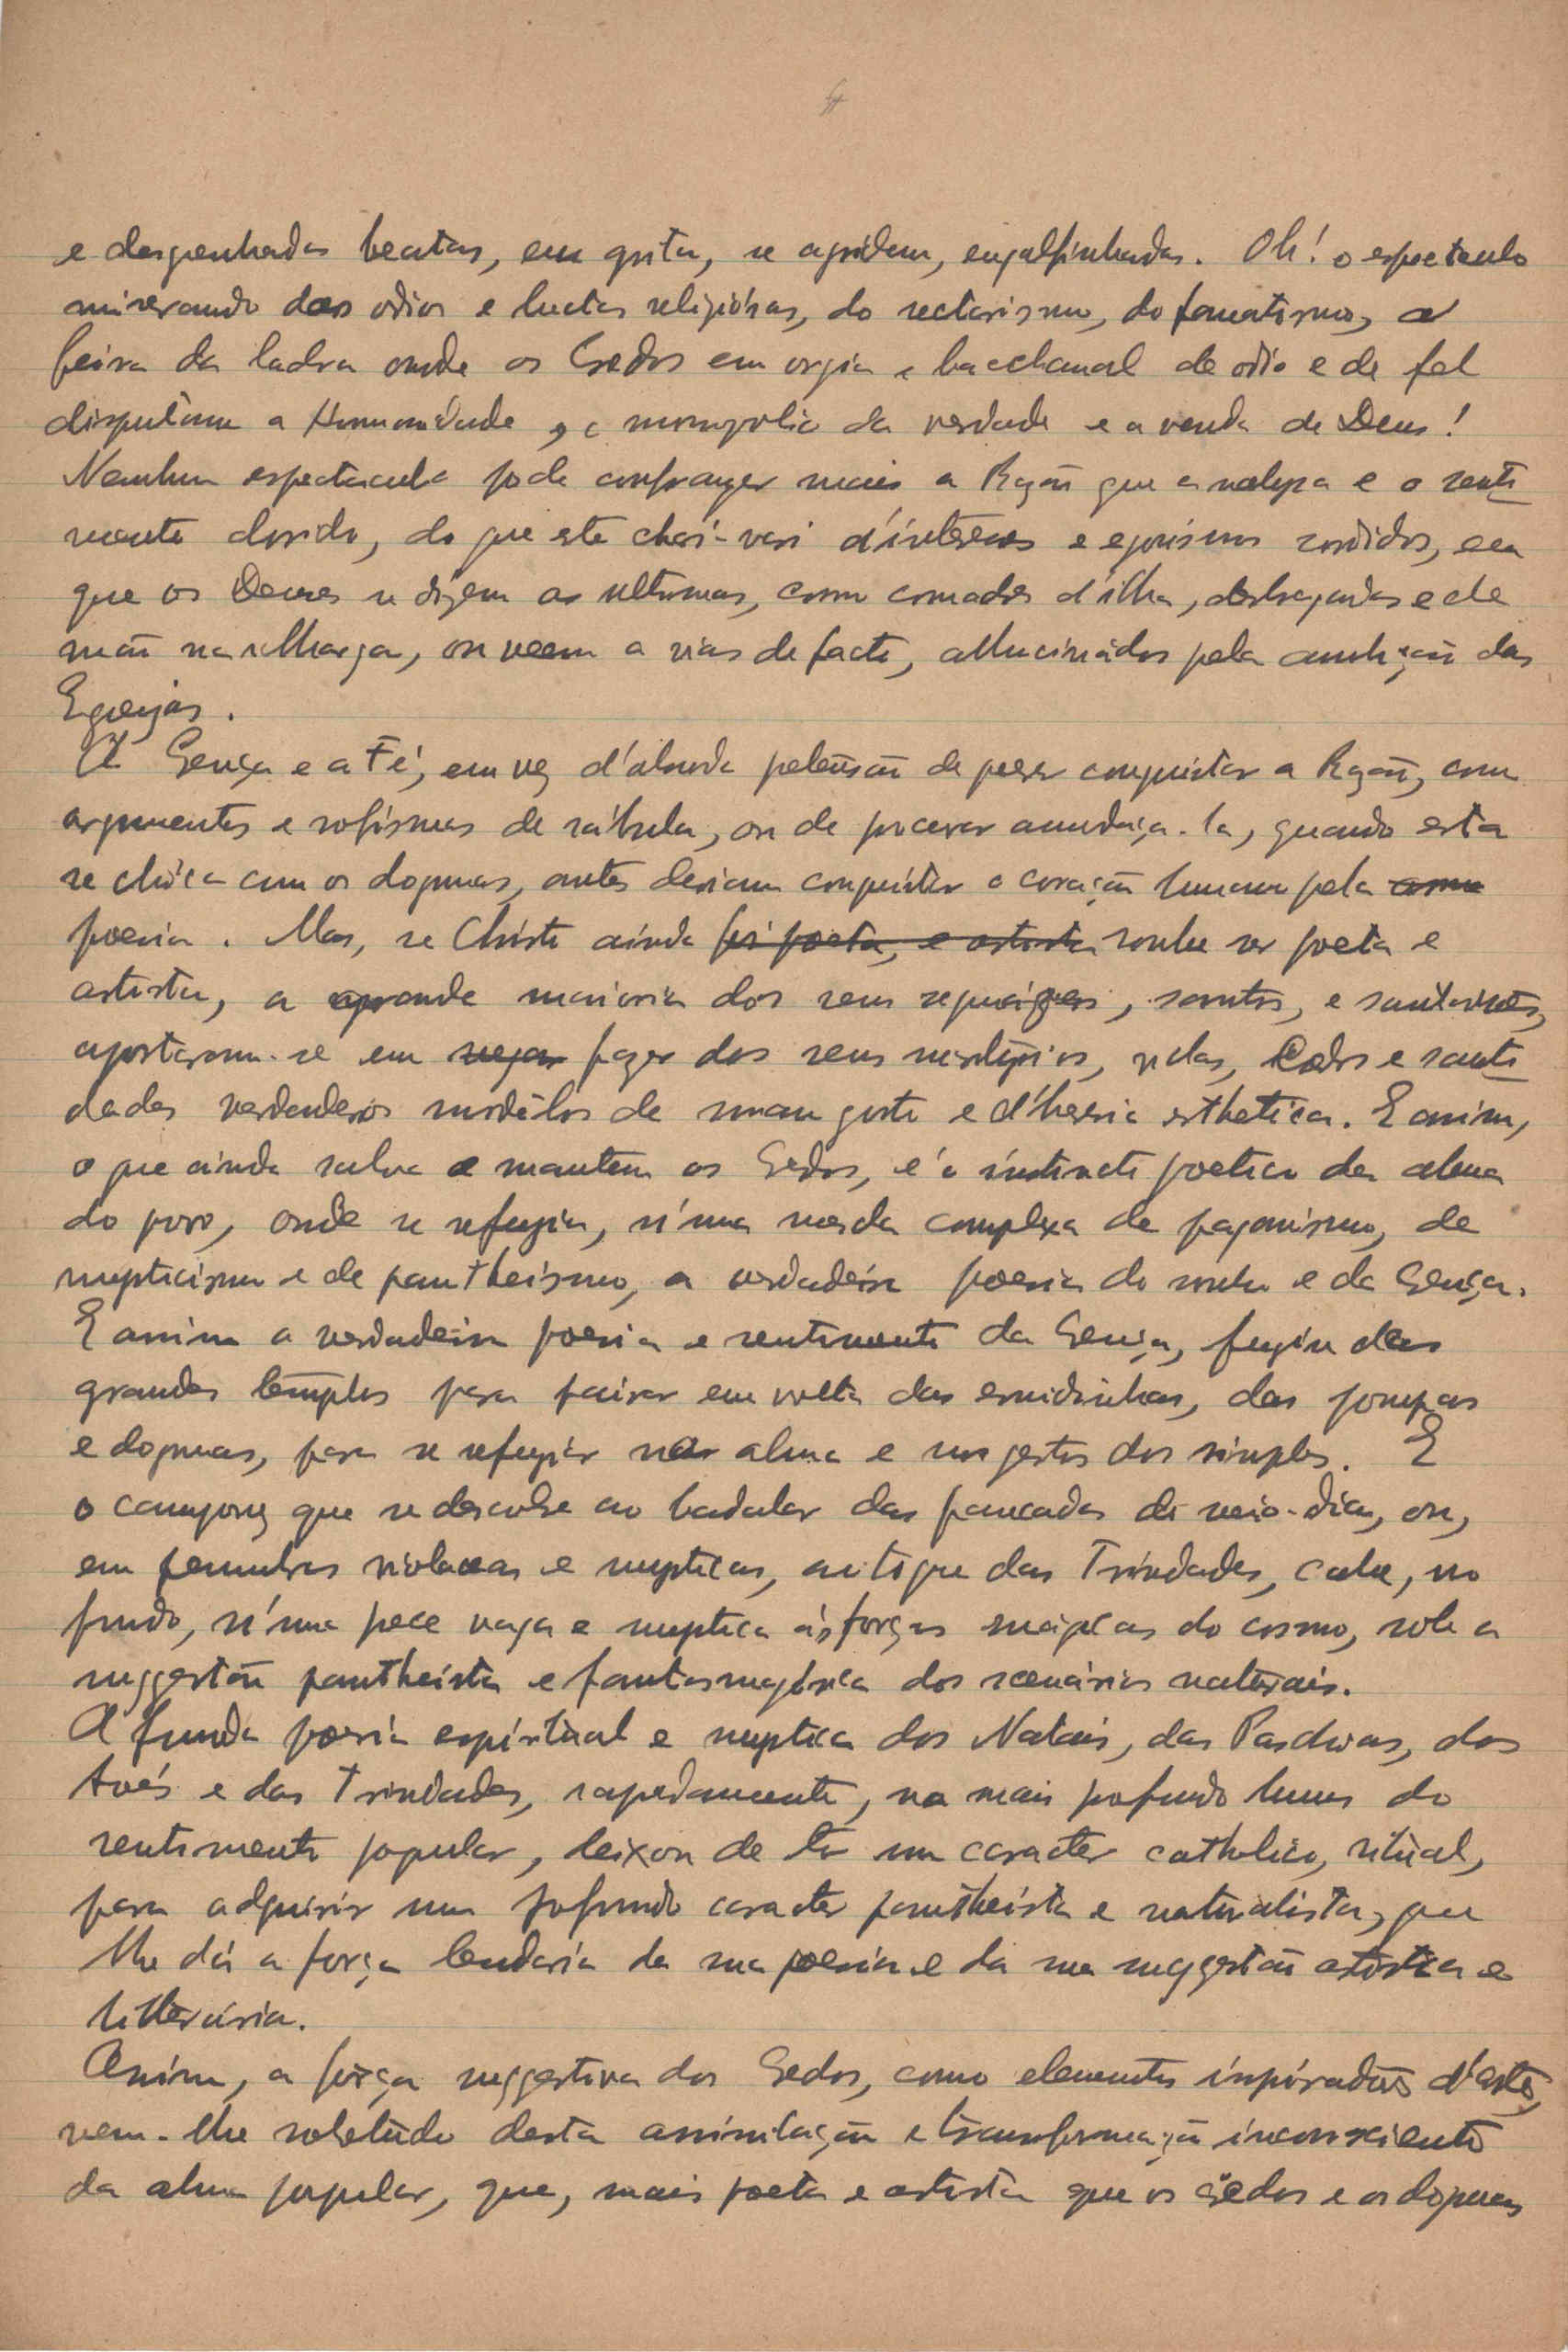 e desgrenhadas beatas, em grita, se agridem, engalfinhadas. Oh! o espectaculo
miserando dos odios e luctas religiósas, do sectarismo, do fanatismo, a
feira da ladra onde os Credos em orgia e bacchanal de odio e de fel
disputam a Humanidade, o monopolio da verdade e a venda de Deus!
Nenhum espectaculo pode confranger mais a Rasão que analysa e o senti
mento dorido, do que este chari-vari d'intéresses e egoismos sordidos, em
que os Deuses se dizem as ultimas, como comadres d'ilha, desbragadas e de
mão na ilharga, ou veem a vias de facto, allucinádos pela ambição das
Egrejas.
A Crença e a Fé, em vez d'absurda pretensão de querer conquistar a Rasão, com
argumentos e sofismas de rábula, ou de procurar amordaça-la, quando esta
se chóca com os dogmas, antes deviam conquistar o coração humano pela
poesia. Mas, se Christo ainda foi poeta, e artista soube ser poeta e
artista, a grande maioria dos seus sequázes, santos, e santarrões,
apostaram-se em fazer dos seus martyrios, vidas, Credos e santi
dades verdadeiros modêlos de mau gosto e d'heresia esthetica. E assim,
o que ainda salva e mantem os Credos, é o instincto poetico da alma
do povo, onde se refugia, n'uma mescla complexa de paganismo, de
mysticismo e de pantheismo, a verdadeira poesia do sonho e da Crença.
E assim a verdadeira poesia e sentimento da Crença, fugiu dos
grandes templos para pairar em volta das ermidinhas, das pompas
e dogmas, para se refugiar na alma e nos gestos dos simples. E
o camponez que se descobre ao badalar das pancadas do meio-dia, ou,
em penumbras violaceas e mysticas, ao toque das Trindades, cahe, no
fundo, n'uma prece vaga e mystica ás forças mágicas do cosmo, sob a
suggestão pantheista e fantasmagórica dos scenários naturais.
A funda poesia espiritual e mystica dos Natais, das Paschoas, das
Avés e das Trindades, rapidamente, no mais profundo humus do
sentimento popular, deixou de ter um caracter catholico, ritual,
para adquirir um profundo caracter pantheista e naturalista, que
lhe dá a força lendaria da sua poesia e da sua suggestão artistica e
litterária.
Assim, a força suggestiva dos Credos, como elementos inspiradores d'arte,
vem-lhe sobretudo desta assimilação e transformação inconsciente
da alma popular, que, mais poeta e artista que os Credos e os dogmas